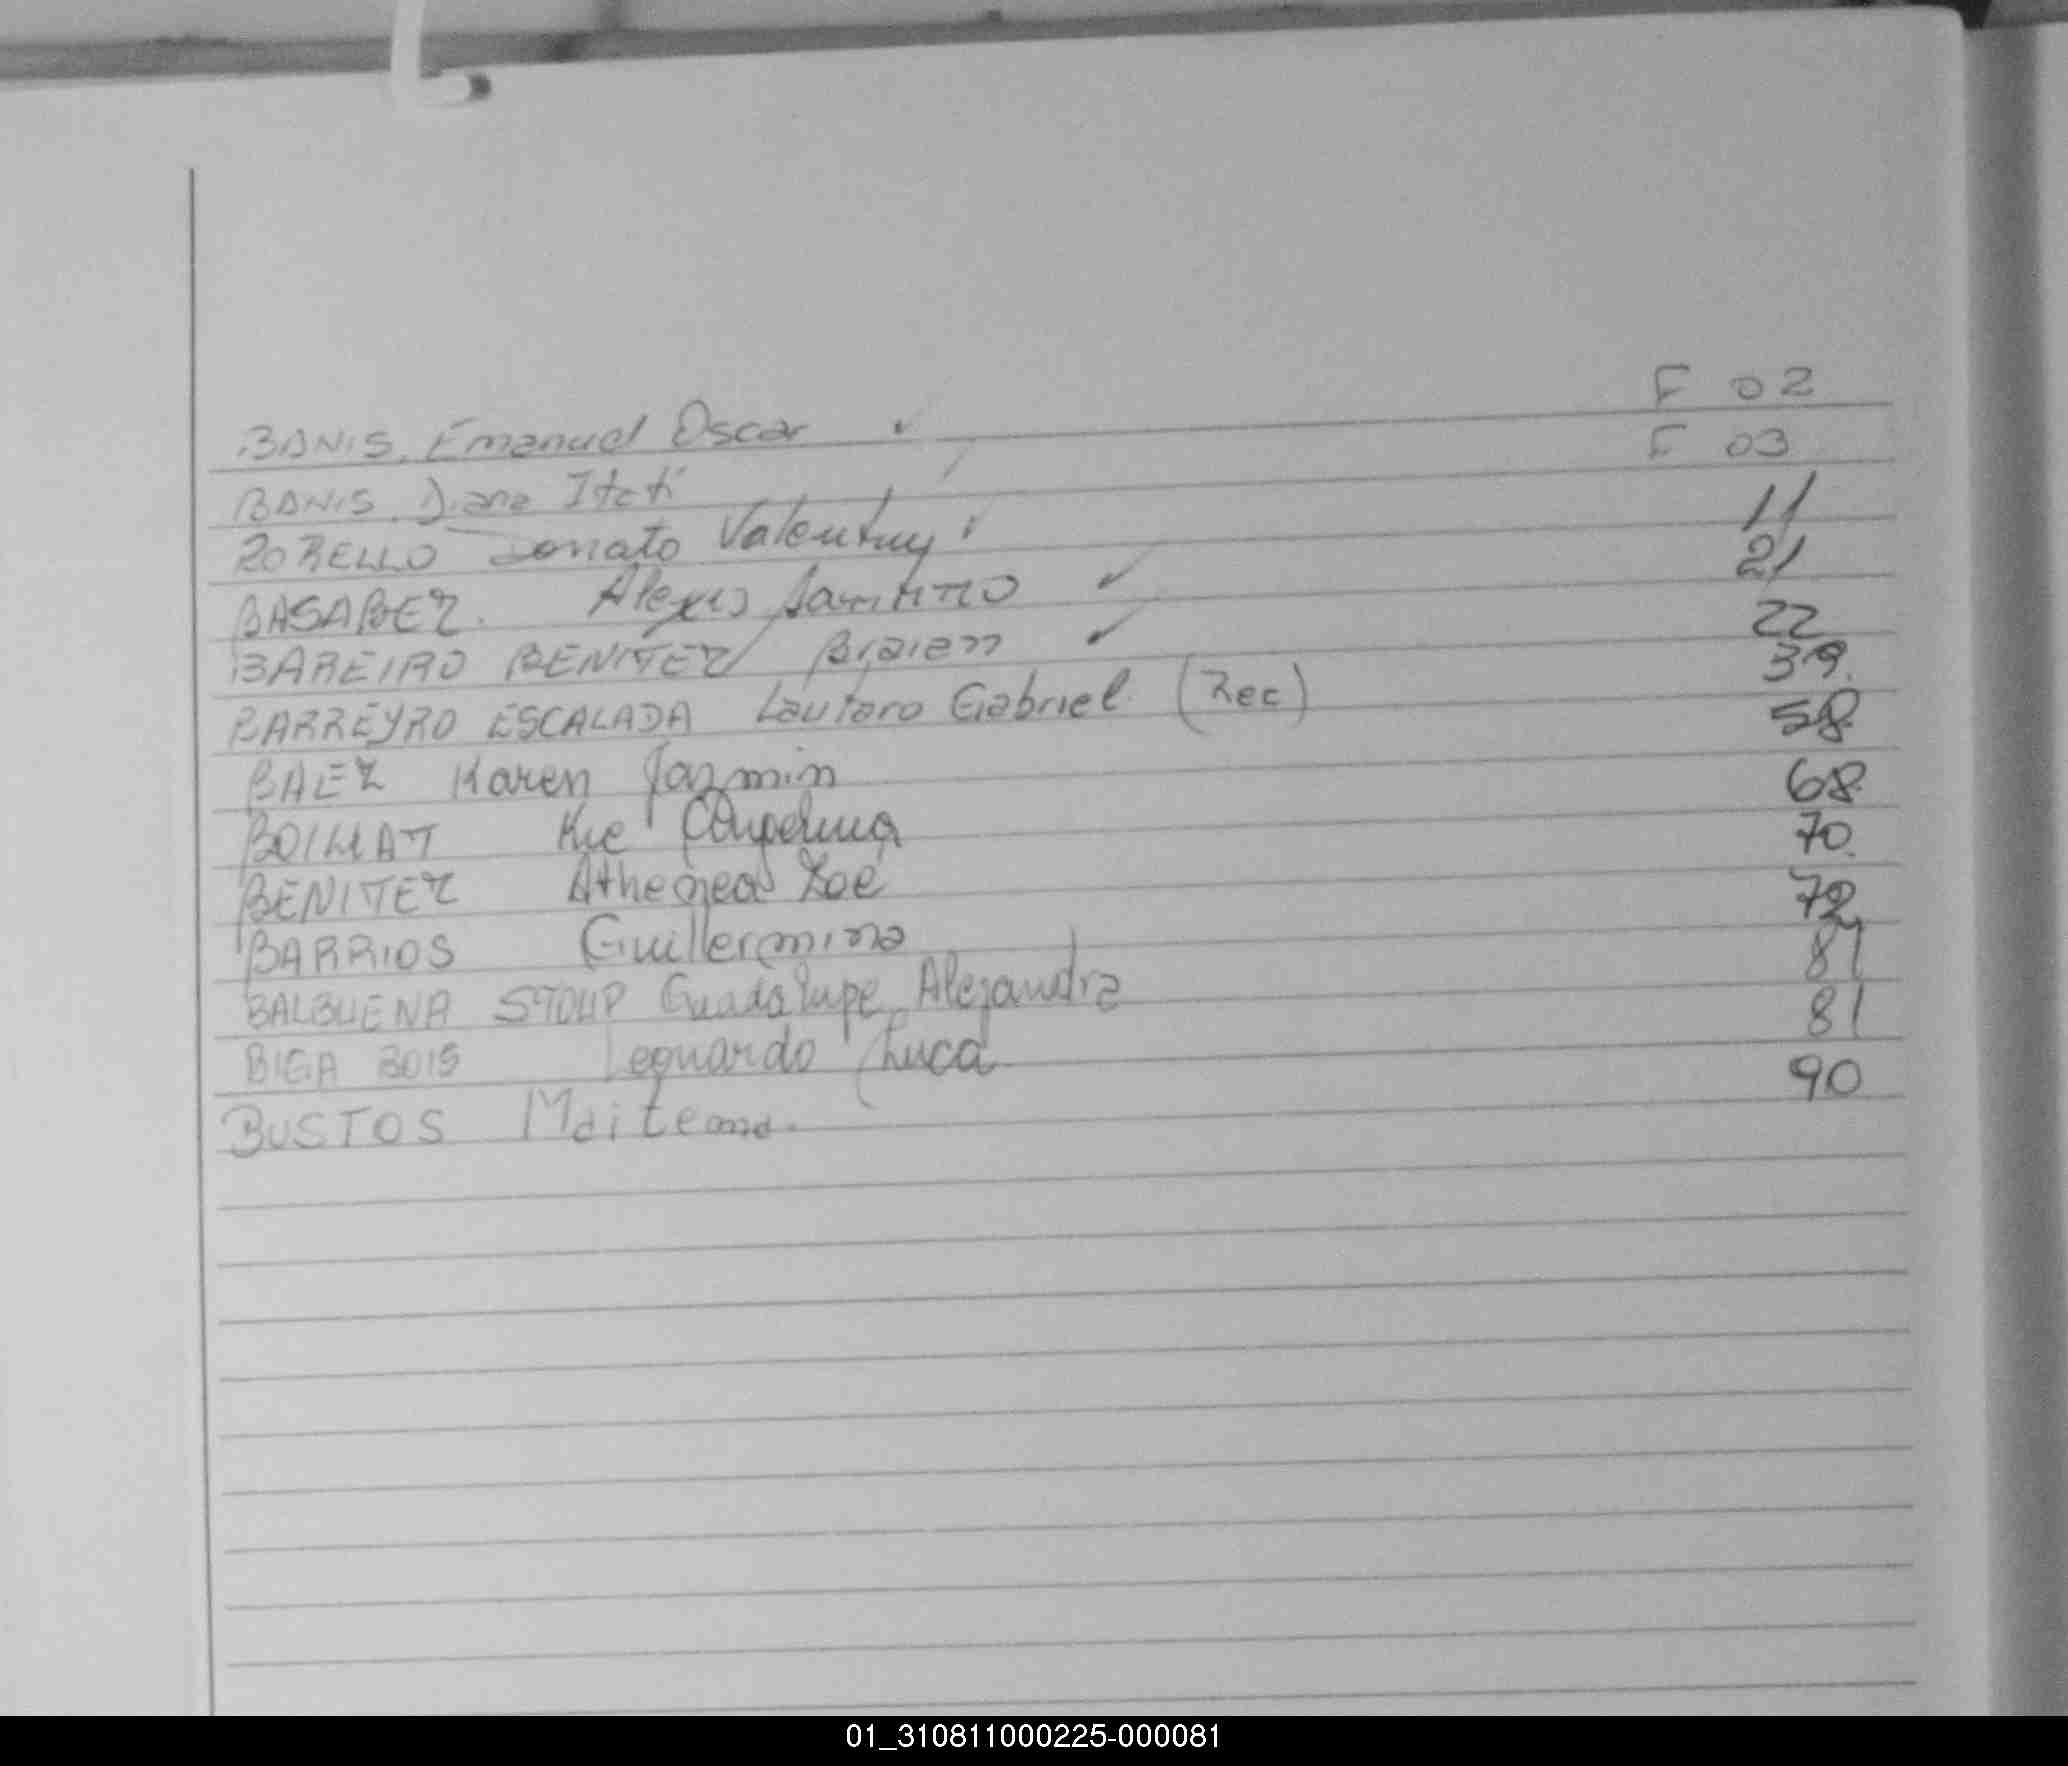 BANIS, Emanuel Oscar ✓ F 02
BANIS, Diana Itati F 03
ROBELLO Donato Valentuy 11
BASABEZ. Alexis 21
BAREIRO BENITEZ Braien ✓ 22
BARREYRO ESCALADA Lautaro Gabriel (Rec) 39.
BAEZ Karen Jazmin 58
BOILLAT Angelina 68
BENITEZ Athenea Zoe 70
BARRIOS Guillermina 72
BALBUENA STOUP Guadalupe Alejandra 81
BIEA Leonardo Luca 81
BUSTOS Maitena. 90
01_310811000225-000081